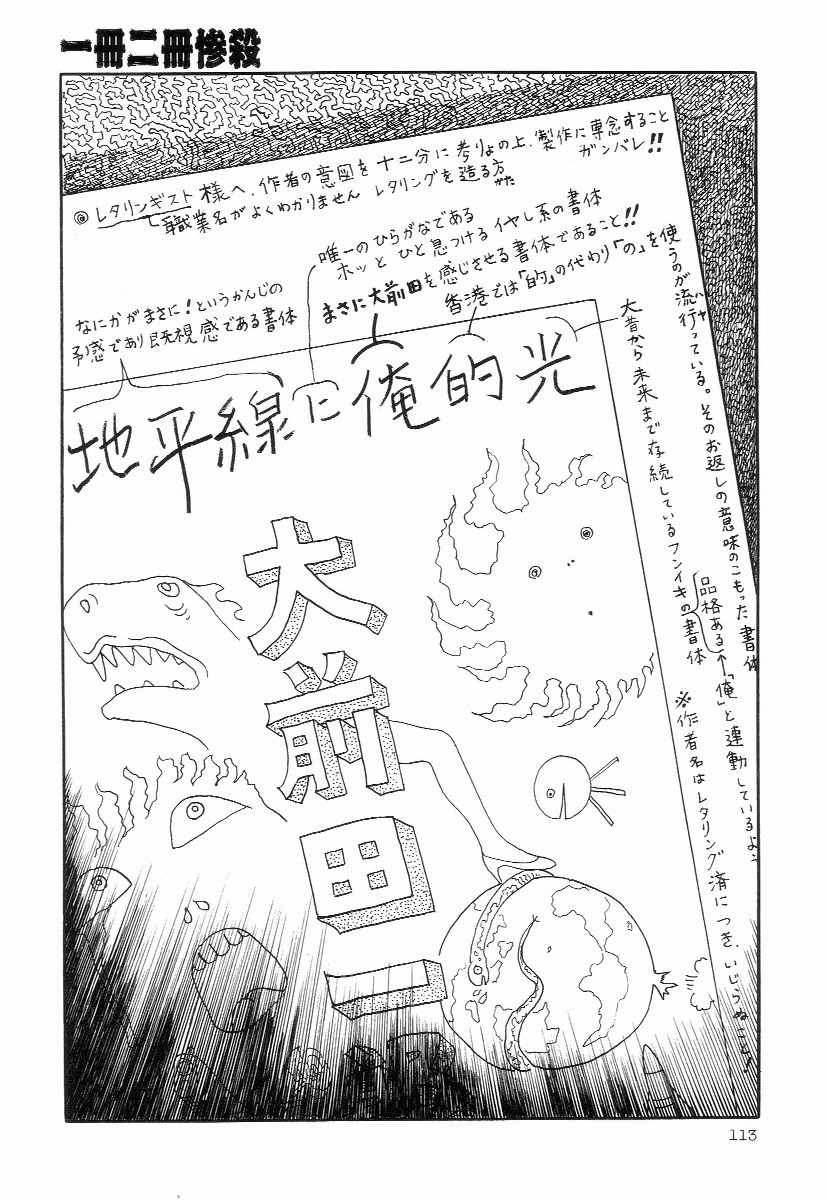 一冊二冊惨殺
◎レタリンギスト様へ.作者の意図を十二分に考りょの上.製作に専念すること
ガンバレ!!
職業名がよくわかりません レタリングを造る方
かた
唯一のひらがなである
ホッと ひと息つける イヤし系の書体
まさに大前田を感じさせる書体であること!!
香港では「的」の代わり「の」を使うのが流行っている。そのお返しの意味のこもった書体
ハヤ
なにかがまさに!というかんじの
予感であり既視感である書体
大昔から未来まで存続しているフンイキの書体
品格ある←「俺」と連動しているよ、
※作者名はレタリング済につき.いじらぬこと!
地平線に俺的光
大前田一
113